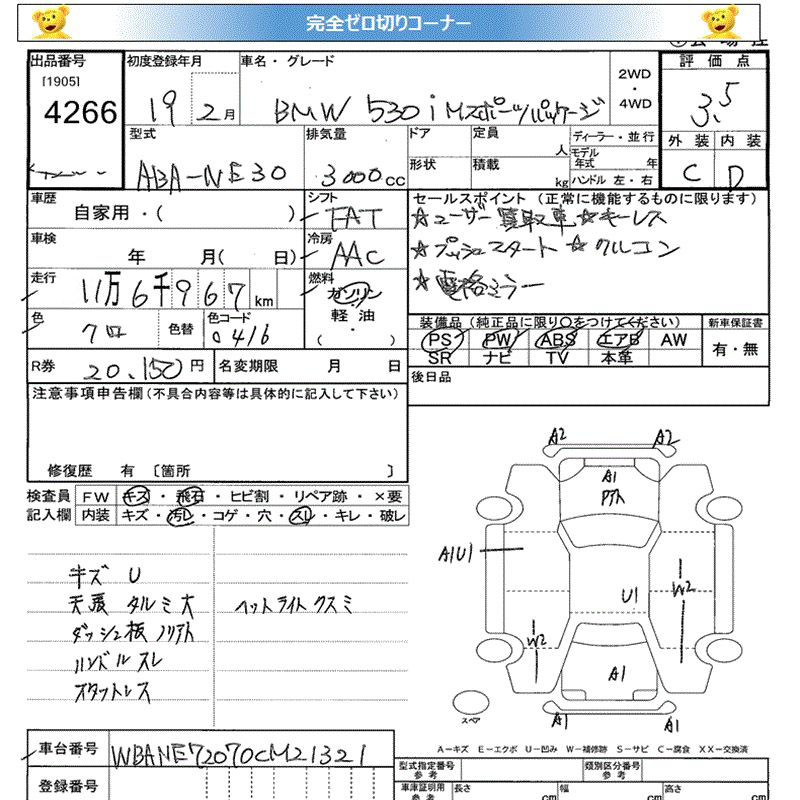 完全ゼロ切りコーナー
出品番号 初度登録年月 車名・グレード 2WD・4WD 評価点
[1905]
4266 19 2月 BMW 530i Mスポーツパッケージ 3.5
型式 排気量 ドア 定員 人 ディーラー・並行 外装 内装
モデル年式 年
ABA-NE30 3000cc 形状 積載 kg ハンドル 左・右 C D
車歴 自家用・( ) シフト FAT セールスポイント (正常に機能するものに限ります)
☆ユーザー買取車☆キーレス
車検 年 月( 日) 冷房 AAC ☆プッシュスタート☆クルコン
走行 11万6千967km 燃料 ガソリン ☆電格ミラー
軽油
( ・ )
色 クロ 色替 色コード 0416 装備品 (純正品に限り○をつけてください) 新車保証書
PS PW ABS エアB AW 有・無
SR ナビ TV 本革
R券 20,150円 名変期限 月 日 後日品
注意事項申告欄 (不具合内容等は具体的に記入して下さい)
修復歴 有 〔箇所 〕
検査員 FW キズ・飛石・ヒビ割・リペア跡・×要
記入欄 内装 キズ・汚レ・コゲ・穴・スレ・キレ・破レ
キズ U
天張 タルミ大 ヘットライトクスミ
ダッシュ板 ノリアト
ハンドルスレ
スタットレス
A2 A2
A1
アト
A1U1
U1
W2
W2
A1
スペア
A1 A1
A-キズ E-エクボ U-凹み W-補修跡 S-サビ C-腐食 XX-交換済
車台番号 WBANE72070CM21321
型式指定番号 参考 類別区分番号 参考
登録番号 車庫証明用 参考 長さ cm 幅 cm 高さ cm